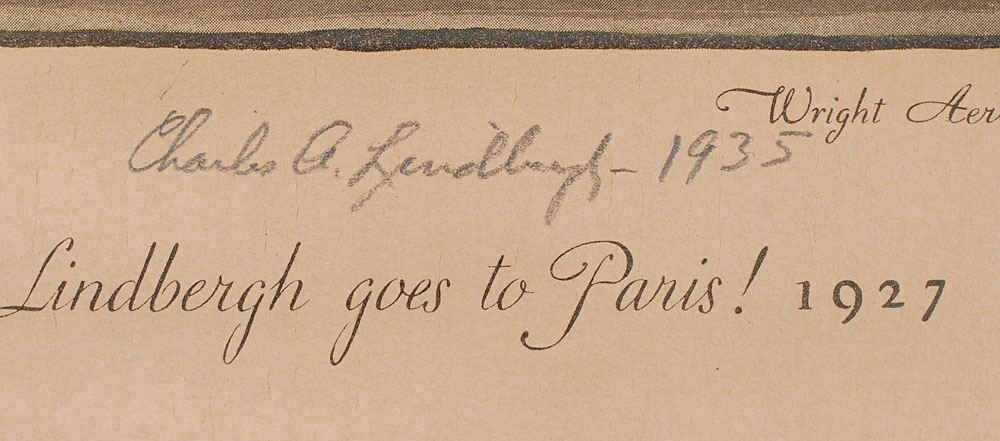 Wright Aer
Charles A. Lindbergh – 1935
Lindbergh goes to Paris! 1927